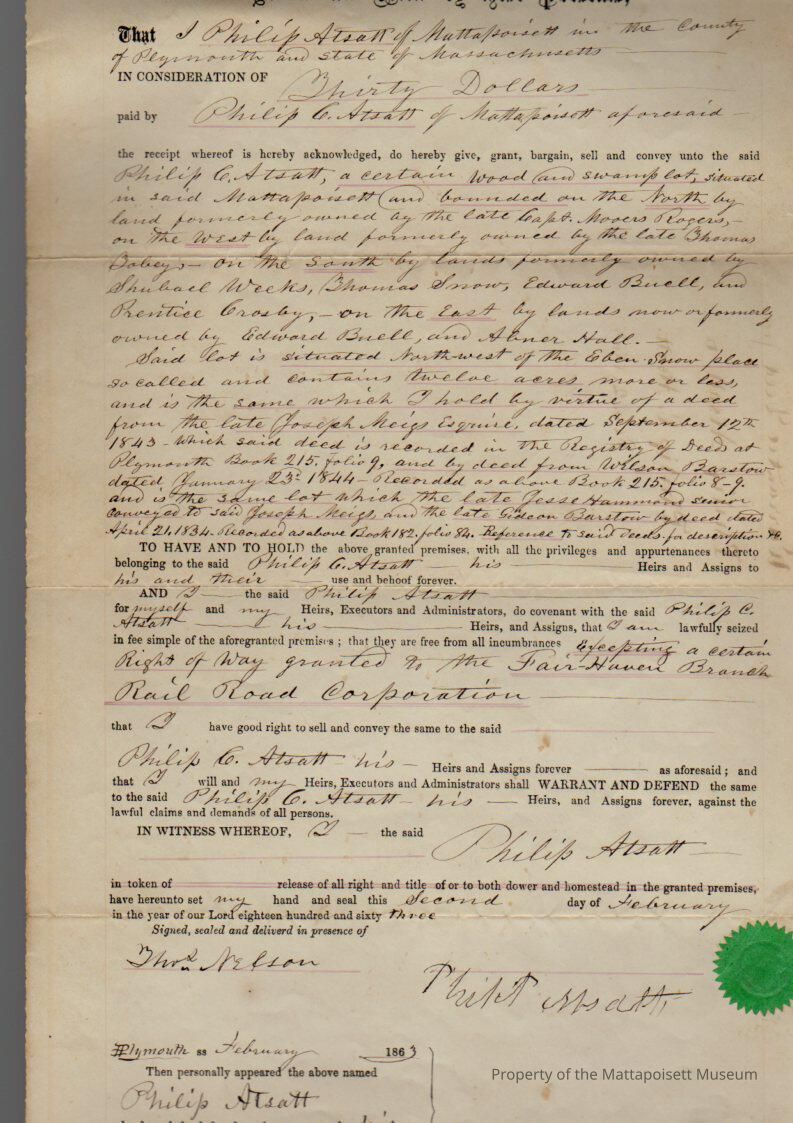 That I Philip Atsatt of Mattapoisett in the County
of Plymouth and state of Massachusetts
IN CONSIDERATION OF Thirty Dollars
paid by Philip C. Atsatt of Mattapoisett aforesaid
the receipt whereof is hereby acknowledged, do hereby give, grant, bargain, sell and convey unto the said
Philip C. Atsatt, a certain wood and swamp lot, situated
in said Mattapoisett and bounded on the North by
land formerly owned by the late Capt. Mooers Rogers,-
on the West by land formerly owned by the late Thomas
Tobey,- on the South by lands formerly owned by
Shubael Weeks, Thomas Snow, Edward Buell, and
Prentice Crosby,- on the East by lands now or formerly
owned by Edward Buell, and Abner Hall.-
Said lot is situated North-west of the Eben Snow place
so called and contains twelve acres more or less,
and is the same which I hold by virtue of a deed
from the late Joseph Meigs Esquire, dated September 12th
1843 - which said deed is recorded in the Registry of Deeds at
Plymouth Book 215. folio 9, and by deed from Wilson Barstow
dated January 23d 1844 - Recorded as above Book 215. folio 8-9.
and is the same lot which the late Jesse Hammond senior
conveyed to said Joseph Meigs, and the late Gideon Barstow by deed dated
April 21. 1834. Recorded as above Book 182. folio 84. Reference to said Deeds. for description &c.
TO HAVE AND TO HOLD the above granted premises, with all the privileges and appurtenances thereto
belonging to the said Philip C. Atsatt his Heirs and Assigns to
his and their use and behoof forever.
AND I the said Philip Atsatt
for myself and my Heirs, Executors and Administrators, do covenant with the said Philip C.
Atsatt his Heirs, and Assigns, that I am lawfully seized
in fee simple of the aforegranted premises ; that they are free from all incumbrances excepting a certain
Right of Way granted to the Fair-Haven Branch
Rail Road Corporation
that I have good right to sell and convey the same to the said
Philip C. Atsatt his Heirs and Assigns forever as aforesaid ; and
that I will and my Heirs, Executors and Administrators shall WARRANT AND DEFEND the same
to the said Philip C. Atsatt his Heirs, and Assigns forever, against the
lawful claims and demands of all persons.
IN WITNESS WHEREOF, I the said
Philip Atsatt
in token of release of all right and title of or to both dower and homestead in the granted premises,
have hereunto set my hand and seal this Second day of February
in the year of our Lord eighteen hundred and sixty three
Signed, sealed and deliverd in presence of
Thos. Nelson
Philip Atsatt
Plymouth ss February 1863
Then personally appeared the above named
Philip Atsatt
Property of the Mattapoisett Museum